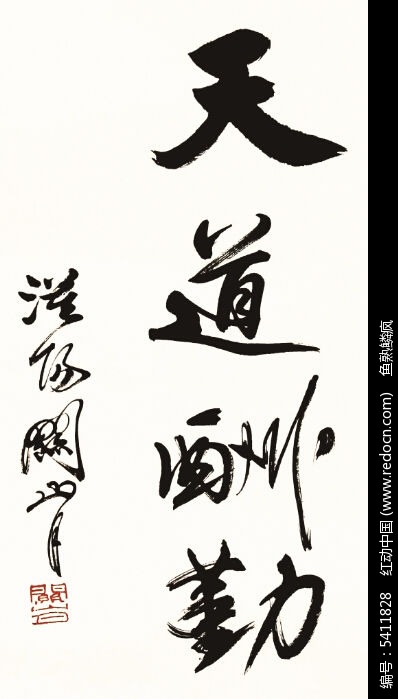 天道酬勤
编号：5411828 红动中国 (www.redocn.com) 鱼熟鳞疯